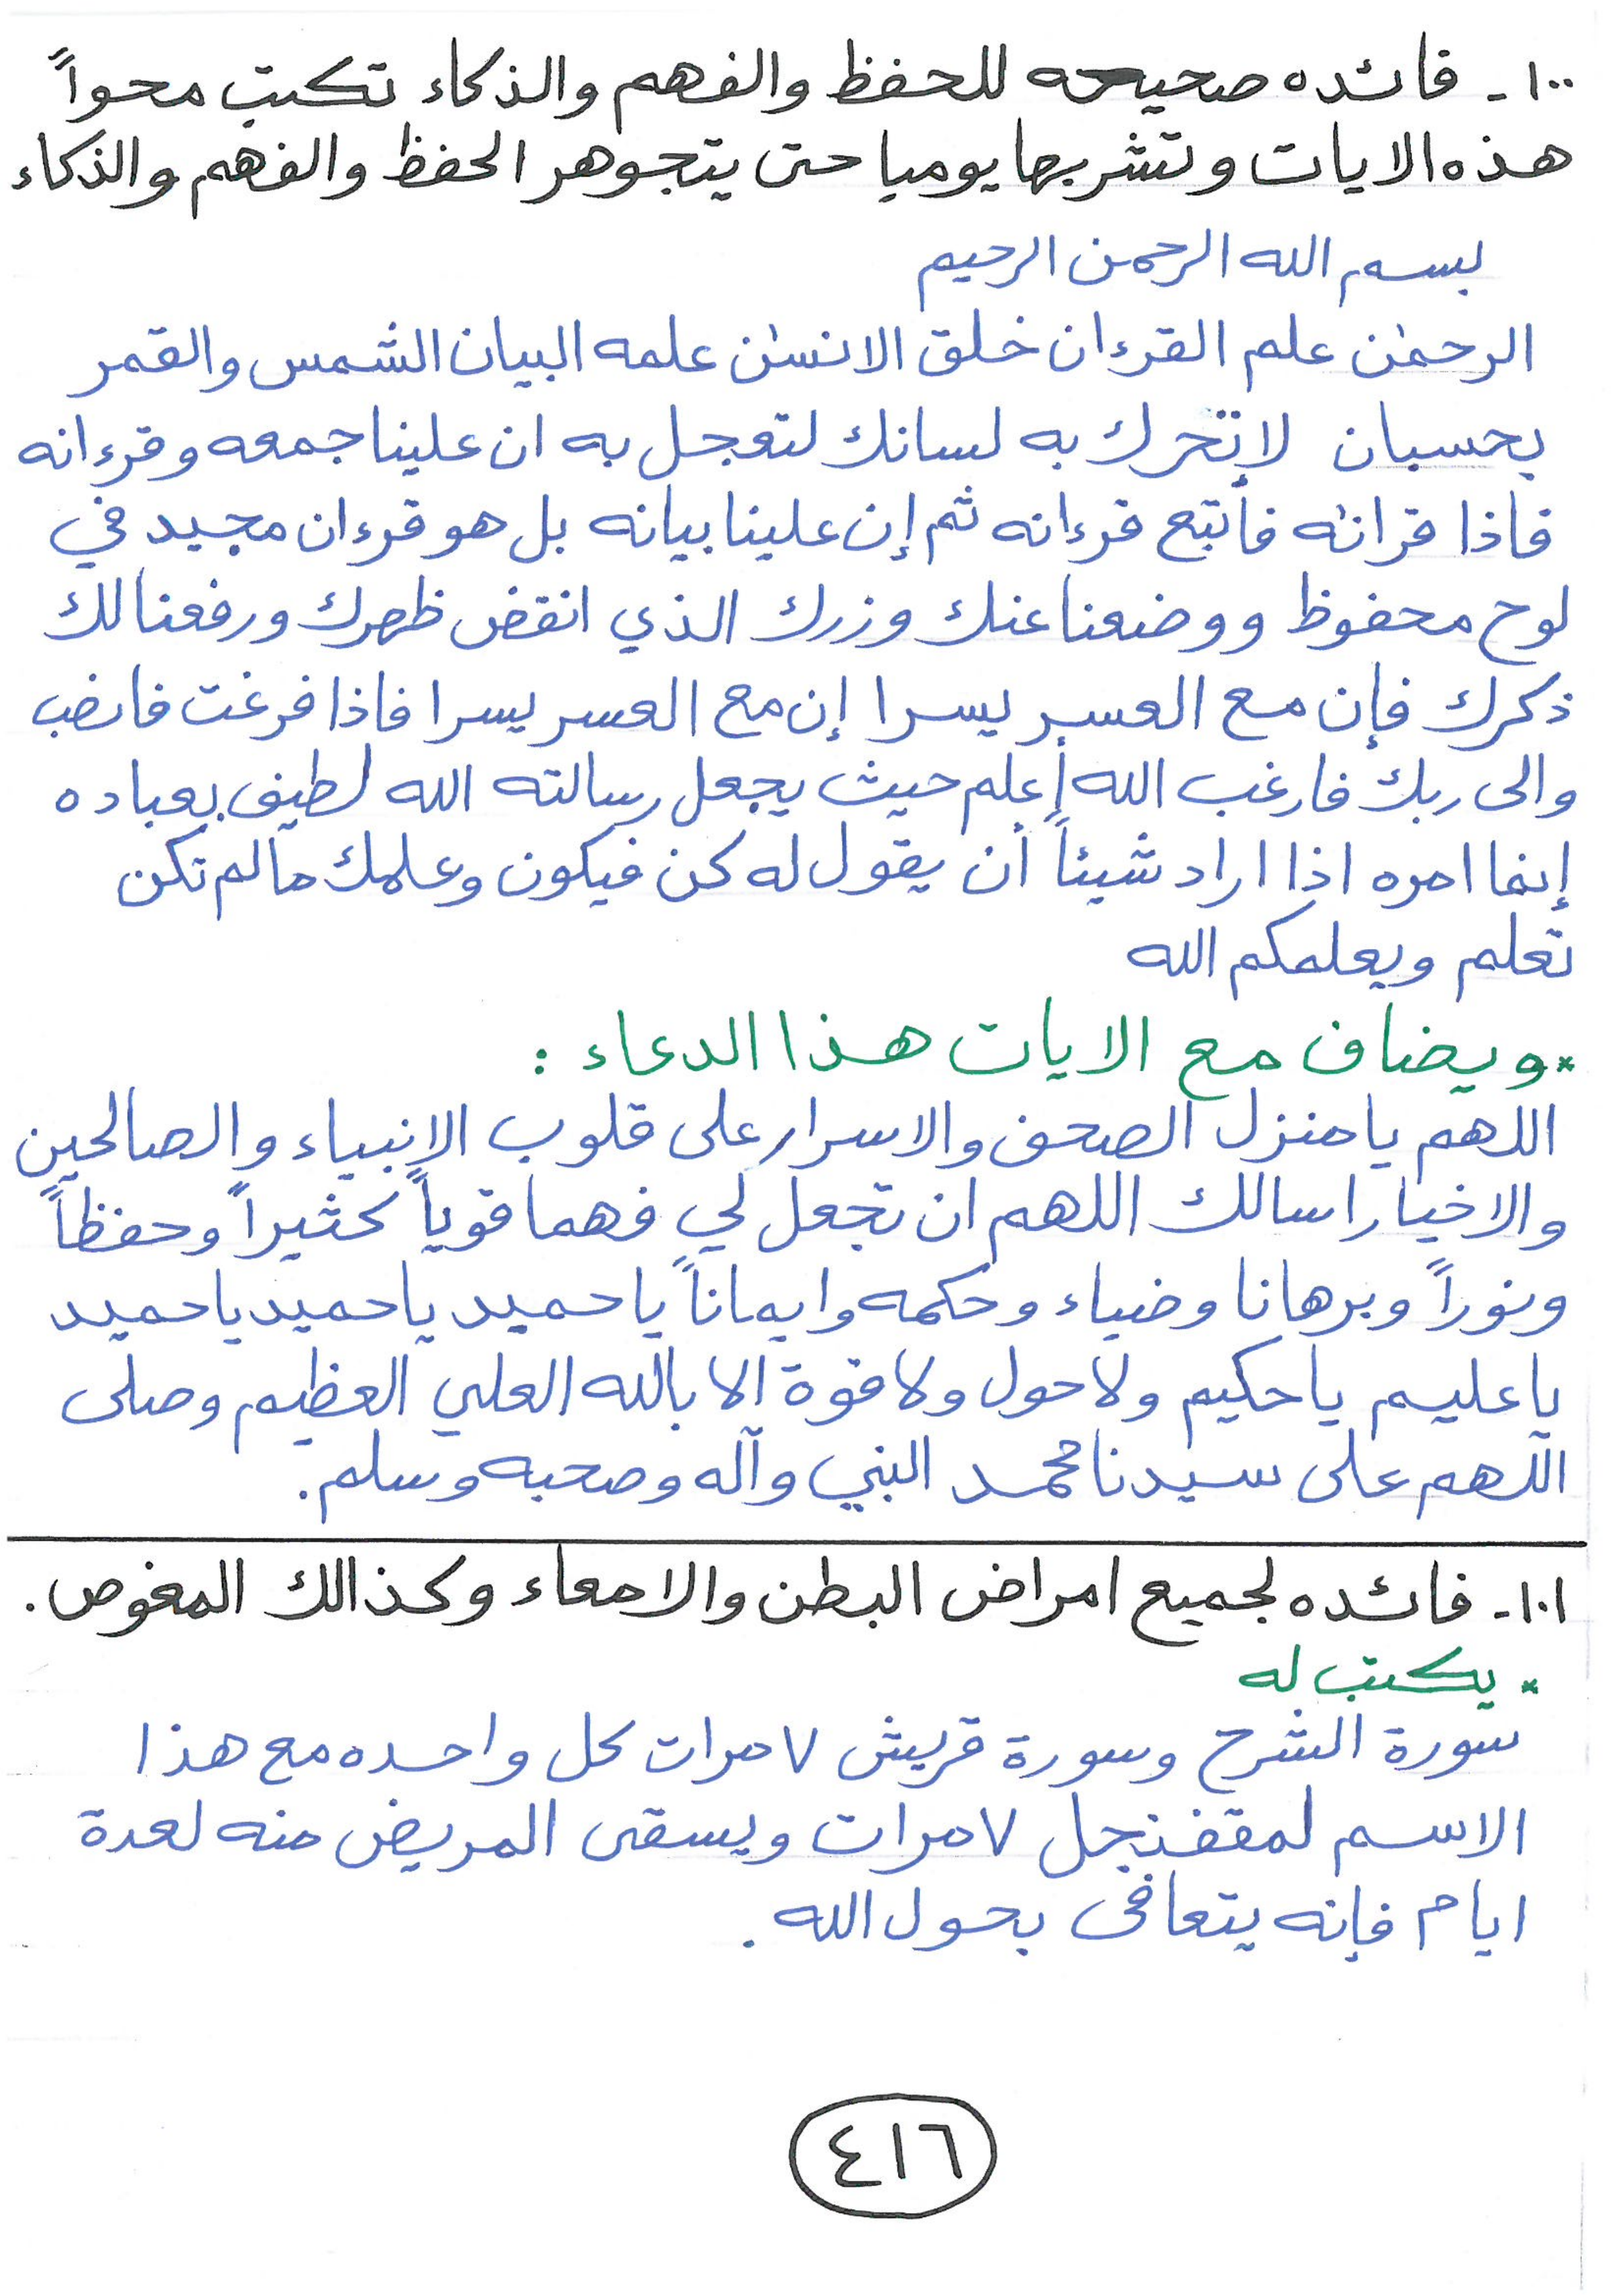 ١٠٠- فائده صحيحه للحفظ والفهم والذكاء تكتب محواً
هذه الايات وتشربها يوميا حتى يتجوهر الحفظ والفهم والذكاء
بسم الله الرحمن الرحيم
الرحمٰن علم القرءان خلق الانسٰن علمه البيان الشمس والقمر
بحسبان لا تحرك به لسانك لتعجل به ان علينا جمعه وقرءانه
فاذا قرانٰه فأتبع قرءانه ثم إن علينا بيانه بل هو قرءان مجيد في
لوح محفوظ ووضعنا عنك وزرك الذي انقض ظهرك ورفعنا لك
ذكرك فإن مع العسر يسرا إن مع العسر يسرا فاذا فرغت فانصب
والى ربك فارغب الله أعلم حيث يجعل رسالته الله لطيف بعباده
إنما امره اذا اراد شيئاً أن يقول له كن فيكون وعلمك مالم تكن
تعلم ويعلمكم الله
* ويضاف مع الايات هذا الدعاء :
اللهم يا منزل الصحف والاسرار على قلوب الانبياء والصالحين
والاخيار اسالك اللهم ان تجعل لي فهما قوياً كثيراً وحفظاً
ونوراً وبرهانا وضياء وحكمه وايماناً ياحميد ياحميد ياحميد
يا عليم يا حكيم ولا حول ولا قوة الا بالله العلي العظيم وصلى
اللهم على سيدنا محمد النبي وآله وصحبه وسلم.
١٠١- فائده لجميع امراض البطن والامعاء وكذالك المغوص.
* يكتب له
سورة الشرح وسورة قريش ٧ مرات كل واحده مع هذا
الاسم لمقفنجل ٧ مرات ويسقى المريض منه لعدة
ايام فإنه يتعافى بحول الله.
٤١٦